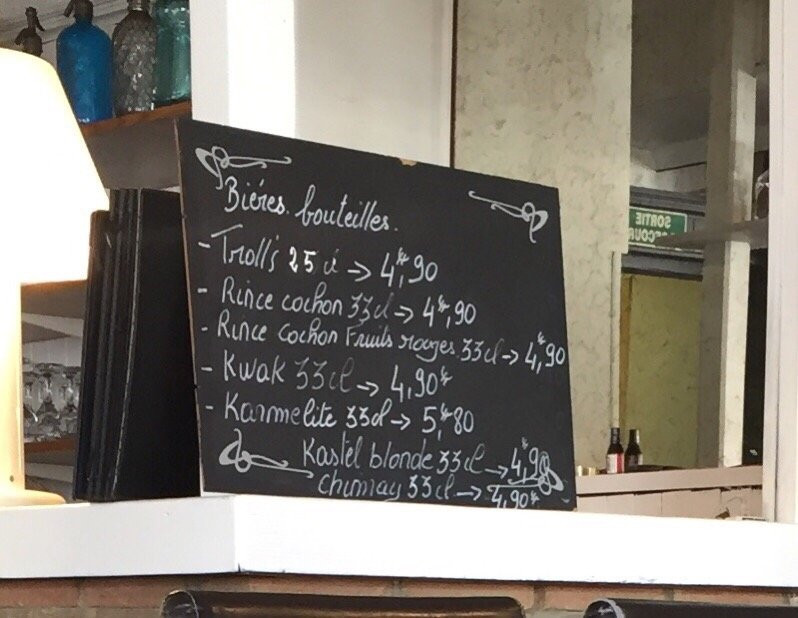 Bières bouteilles.
- Troll's 25 cl → 4,€90
- Rince cochon 33cl → 4,€90
- Rince cochon Fruits rouges 33cl → 4,€90
- Kwak 33cl → 4,90€
- Karmelite 33cl → 5,€80
Kastel blonde 33cl → 4,€90
chimay 33cl → 4,90€
SORTIE
SECOURS